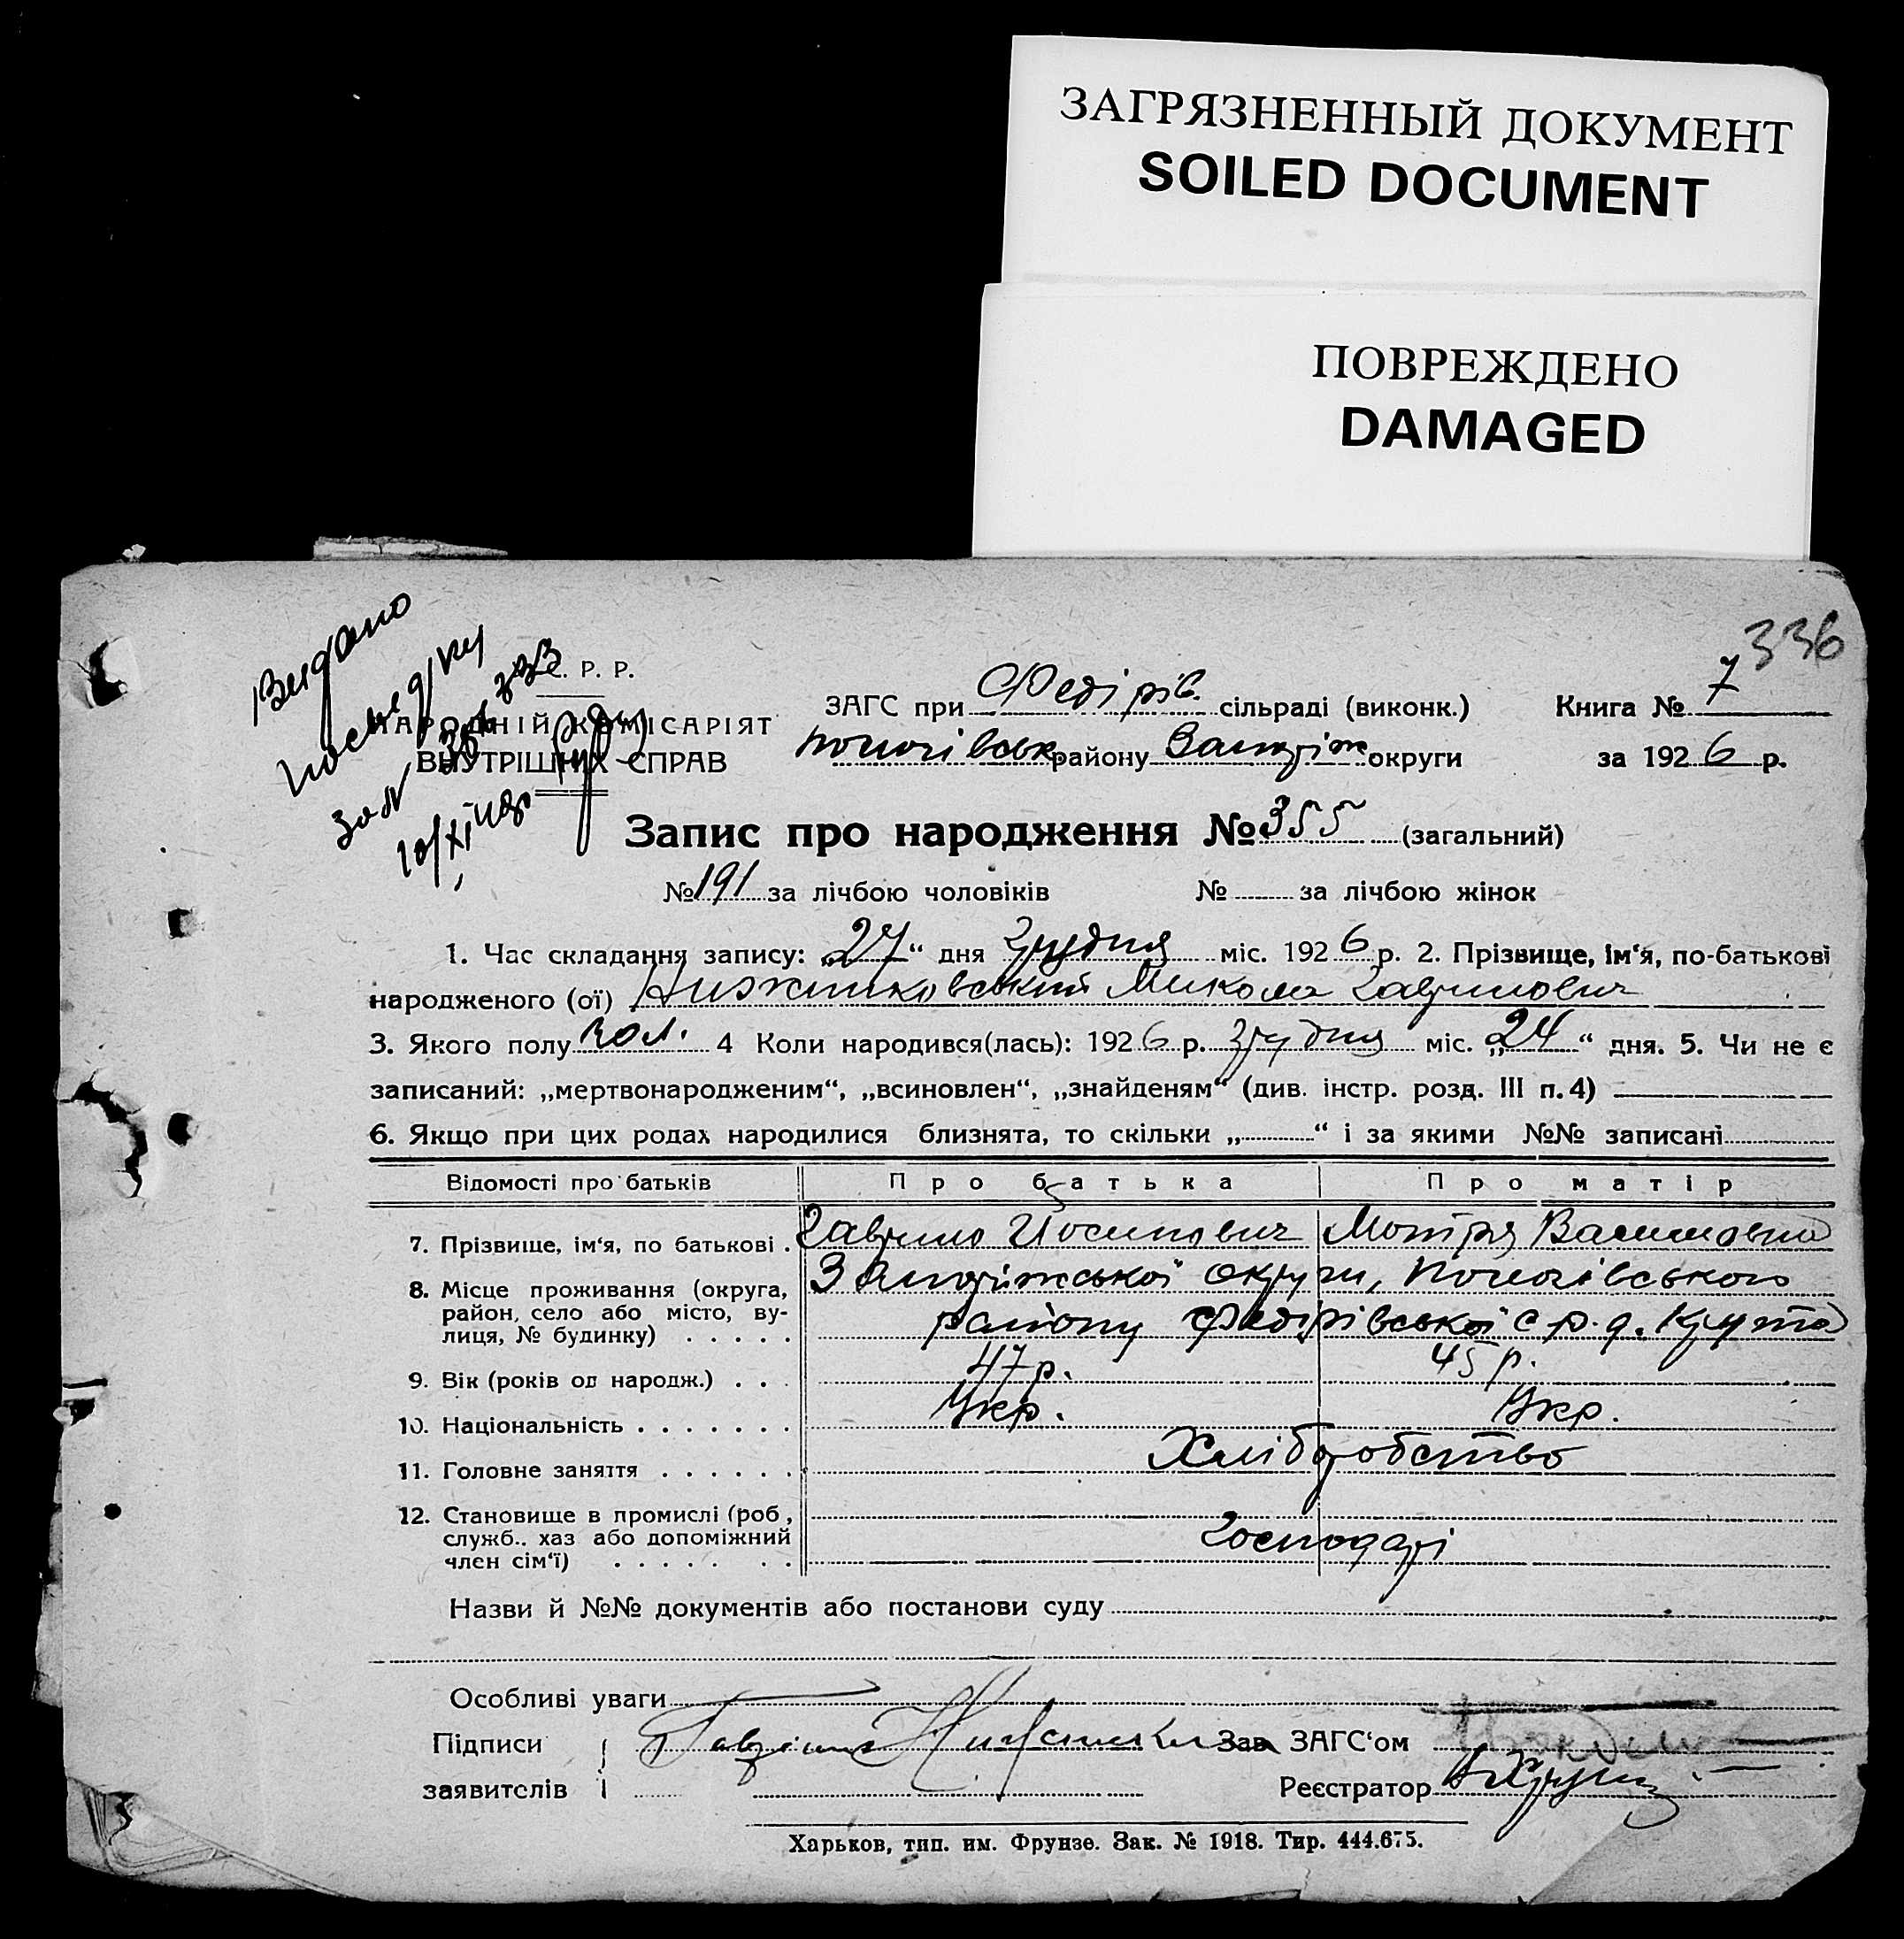 ЗАГРЯЗНЕННЫЙ ДОКУМЕНТ
SOILED DOCUMENT
ПОВРЕЖДЕНО
DAMAGED
336
Видано
10/XI
С. Р. Р.
НАРОДНІЙ КОМІСАРІЯТ
ВНУТРІШНИХ СПРАВ
ЗАГС при Федірів. сільраді (виконк.) Книга № 7
Пологівськ. району Запоріж округи за 1926 р.
Запис про народження № 355 (загальний)
№ 191 за лічбою чоловіків № за лічбою жінок
1. Час складання запису: „27“ дня Грудня міс. 1926 р. 2. Прізвище, ім‘я, по-батькові
народженого (ої) Микола Гаврилович
3. Якого полу чол. 4 Коли народився(лась): 1926 р. Грудня міс. „24“ дня. 5. Чи не є
записаний: „мертвонародженим“, „всиновлен“, „знайденям“ (див. інстр. розд. III п. 4)
6. Якщо при цих родах народилися близнята, то скільки „ “ і за якими №№ записані
Відомості про батьків Про батька Про матір
7. Прізвище, ім‘я, по батькові . Гаврило Йосипович Мотря Василівна
8. Місце проживання (округа, Запоріжської округи, Пологівського
район, село або місто, ву-
лиця, № будинку) . . . . . району Федірівської с р. д.
9. Вік (років од народж.) . . . 47 р. 45 р.
10. Національність . . . . . . . Укр. Укр.
11. Головне заняття . . . . . . Хліборобство
12. Становище в промислі (роб,
служб.. хаз або допоміжний Господарі
член сім‘ї) . . . . . . .
Назви й №№ документів або постанови суду
Особливі уваги
Підписи Зав ЗАГС‘ом
заявителів Реєстратор
Харьков, тип. им. Фрунзе. Зак. № 1918. Тир. 444.675.